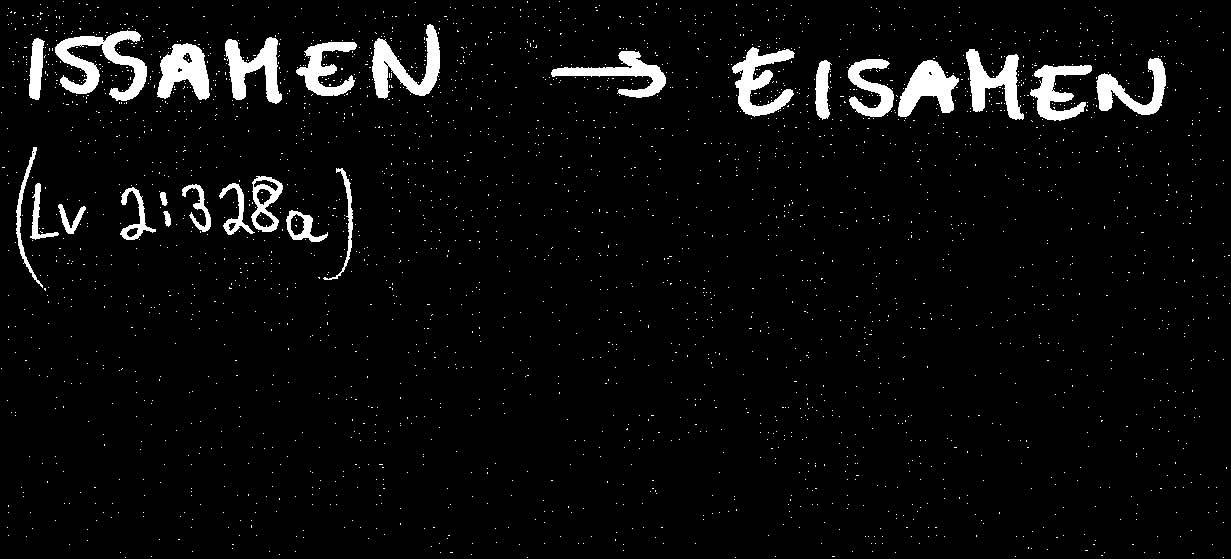 ISSAMEN → EISAMEN
(Lv 2:328a)